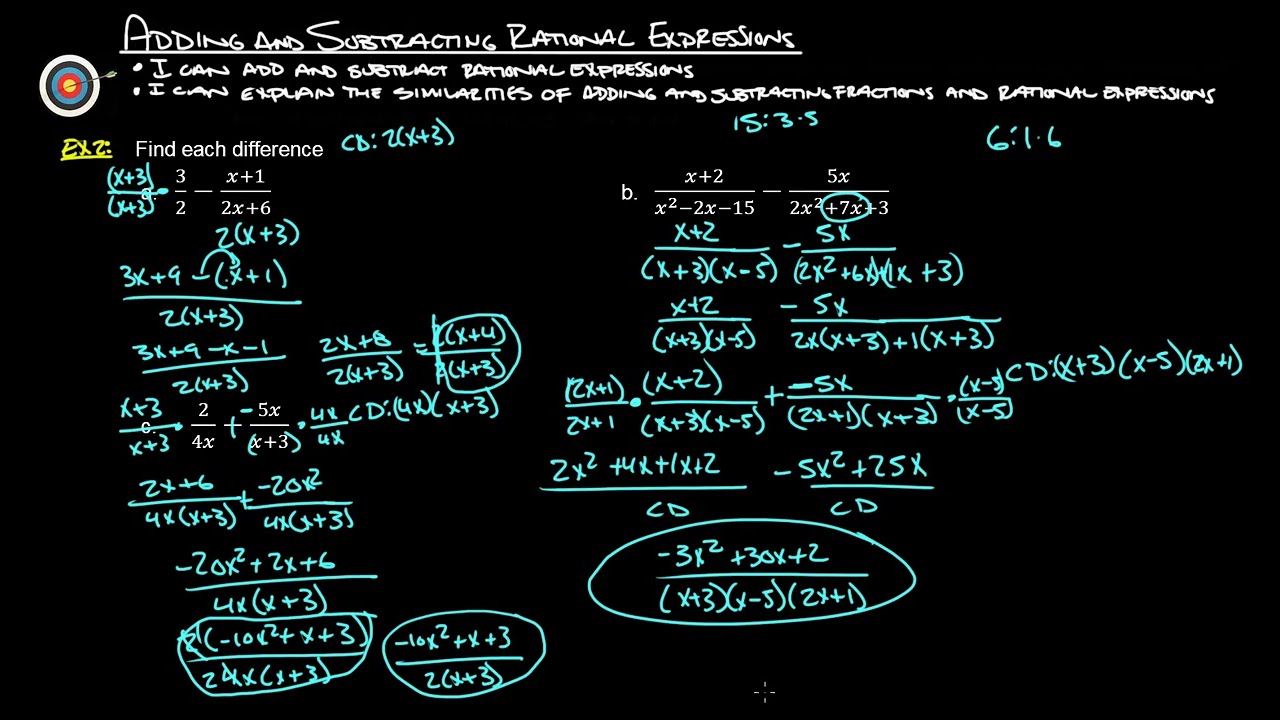 ADDING AND SUBTRACTING RATIONAL EXPRESSIONS
• I CAN ADD AND SUBTRACT RATIONAL EXPRESSIONS
• I CAN EXPLAIN THE SIMILARITIES OF ADDING AND SUBTRACTING FRACTIONS AND RATIONAL EXPRESSIONS
EX2: Find each difference CD: 2(x+3)
(x+3)/(x+3) • 3/2 − (x+1)/(2x+6)
2(x+3)
(3x+9 −(x+1))/(2(x+3))
(3x+9−x−1)/(2(x+3)) (2x+8)/(2(x+3)) = 2(x+4)/2(x+3)
c. (x+3)/(x+3) • 2/4x + −5x/(x+3) • 4x/4x CD: (4x)(x+3)
(2x+6)/(4x(x+3)) + −20x²/(4x(x+3))
(−20x²+2x+6)/(4x(x+3))
2(−10x²+x+3)/(24xx(x+3)) (−10x²+x+3)/(2(x+3))
15: 3·5
6: 1·6
b. (x+2)/(x²−2x−15) − 5x/(2x²+7x+3)
(x+2)/((x+3)(x−5)) − 5x/((2x²+6x)+(1x+3))
(x+2)/((x+3)(x−5)) −5x/(2x(x+3)+1(x+3))
CD: (x+3)(x−5)(2x+1)
(2x+1)/(2x+1) • (x+2)/((x+3)(x−5)) + −5x/((2x+1)(x+3)) • (x−5)/(x−5)
(2x²+4x+1x+2)/CD (−5x²+25x)/CD
(−3x²+30x+2)/((x+3)(x−5)(2x+1))